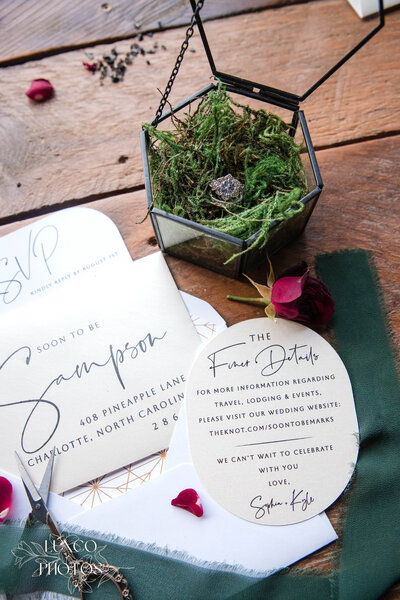 RSVP
KINDLY REPLY BY AUGUST 1ST
SOON TO BE
Sampson
408 PINEAPPLE LANE
CHARLOTTE, NORTH CAROLIN
286
THE
Finer Details
FOR MORE INFORMATION REGARDING
TRAVEL, LODGING & EVENTS,
PLEASE VISIT OUR WEDDING WEBSITE:
THEKNOT.COM/SOONTOBEMARKS
WE CAN'T WAIT TO CELEBRATE
WITH YOU
LOVE,
Sophia + Kyle
LUXCO
PHOTOS